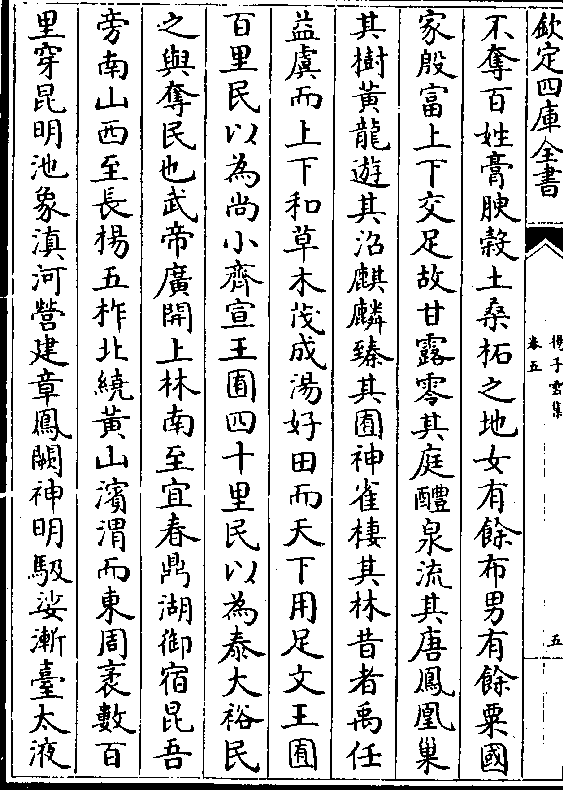 欽定四庫全書
揚子雲集
卷五
五
不奪百姓膏腴穀土桑柘之地女有餘布男有餘粟國
家殷富上下交足故甘露零其庭醴泉流其唐鳳凰巢
其樹黃龍遊其沼麒麟臻其囿神雀棲其林昔者禹任
益虞而上下和草木茂成湯好田而天下用足文王囿
百里民以為尚小齊宣王囿四十里民以為泰大裕民
之與奪民也武帝廣開上林南至宜春鼎湖御宿昆吾
旁南山西至長楊五柞北繞黃山濱渭而東周袤數百
里穿昆明池象滇河營建章鳳闕神明馺娑漸臺太液